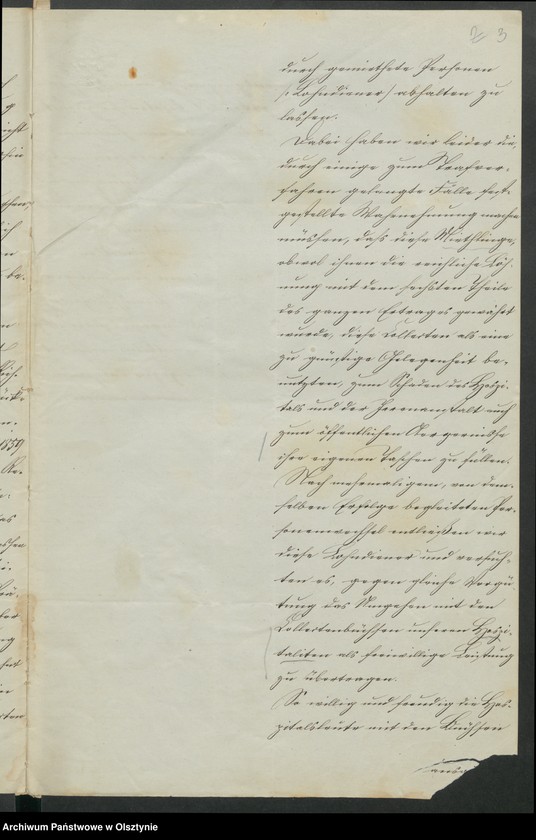 2 3
durch gemiethete Personen
/:Lohndiener:/ abhalten zu
lassen.
Dabei haben wir leider die,
durch einige zum Strafver-
fahren gelangte Fälle fest-
gestellte Wahrnehmung machen
müssen, daß diese Miethlinge,
obwol ihnen die reichliche Löh-
nung mit dem sechsten Theile
des ganzen Ertrages gewährt
wurde, diese Collecten als eine
zu günstige Gelegenheit be-
nutzten, zum Schaden des Hospi-
tals und der Irrenanstalt auch
zum öffentlichen Aergernisse
ihre eigenen Taschen zu füllen.
Nach mehrmaligem, von dem-
selben Erfolge begleiteten Per-
sonenwechsel entließen wir
diese Lohndiener und versuch-
ten es, gegen gleiche Vergü-
tung das Umgehen mit den
Collectenbüchsen unseren Hospi-
taliten als freiwillige Leistung
zu übertragen.
So willig und freudig die Hos-
pitalsleute mit den Büchsen
1859
Archiwum Państwowe w Olsztynie